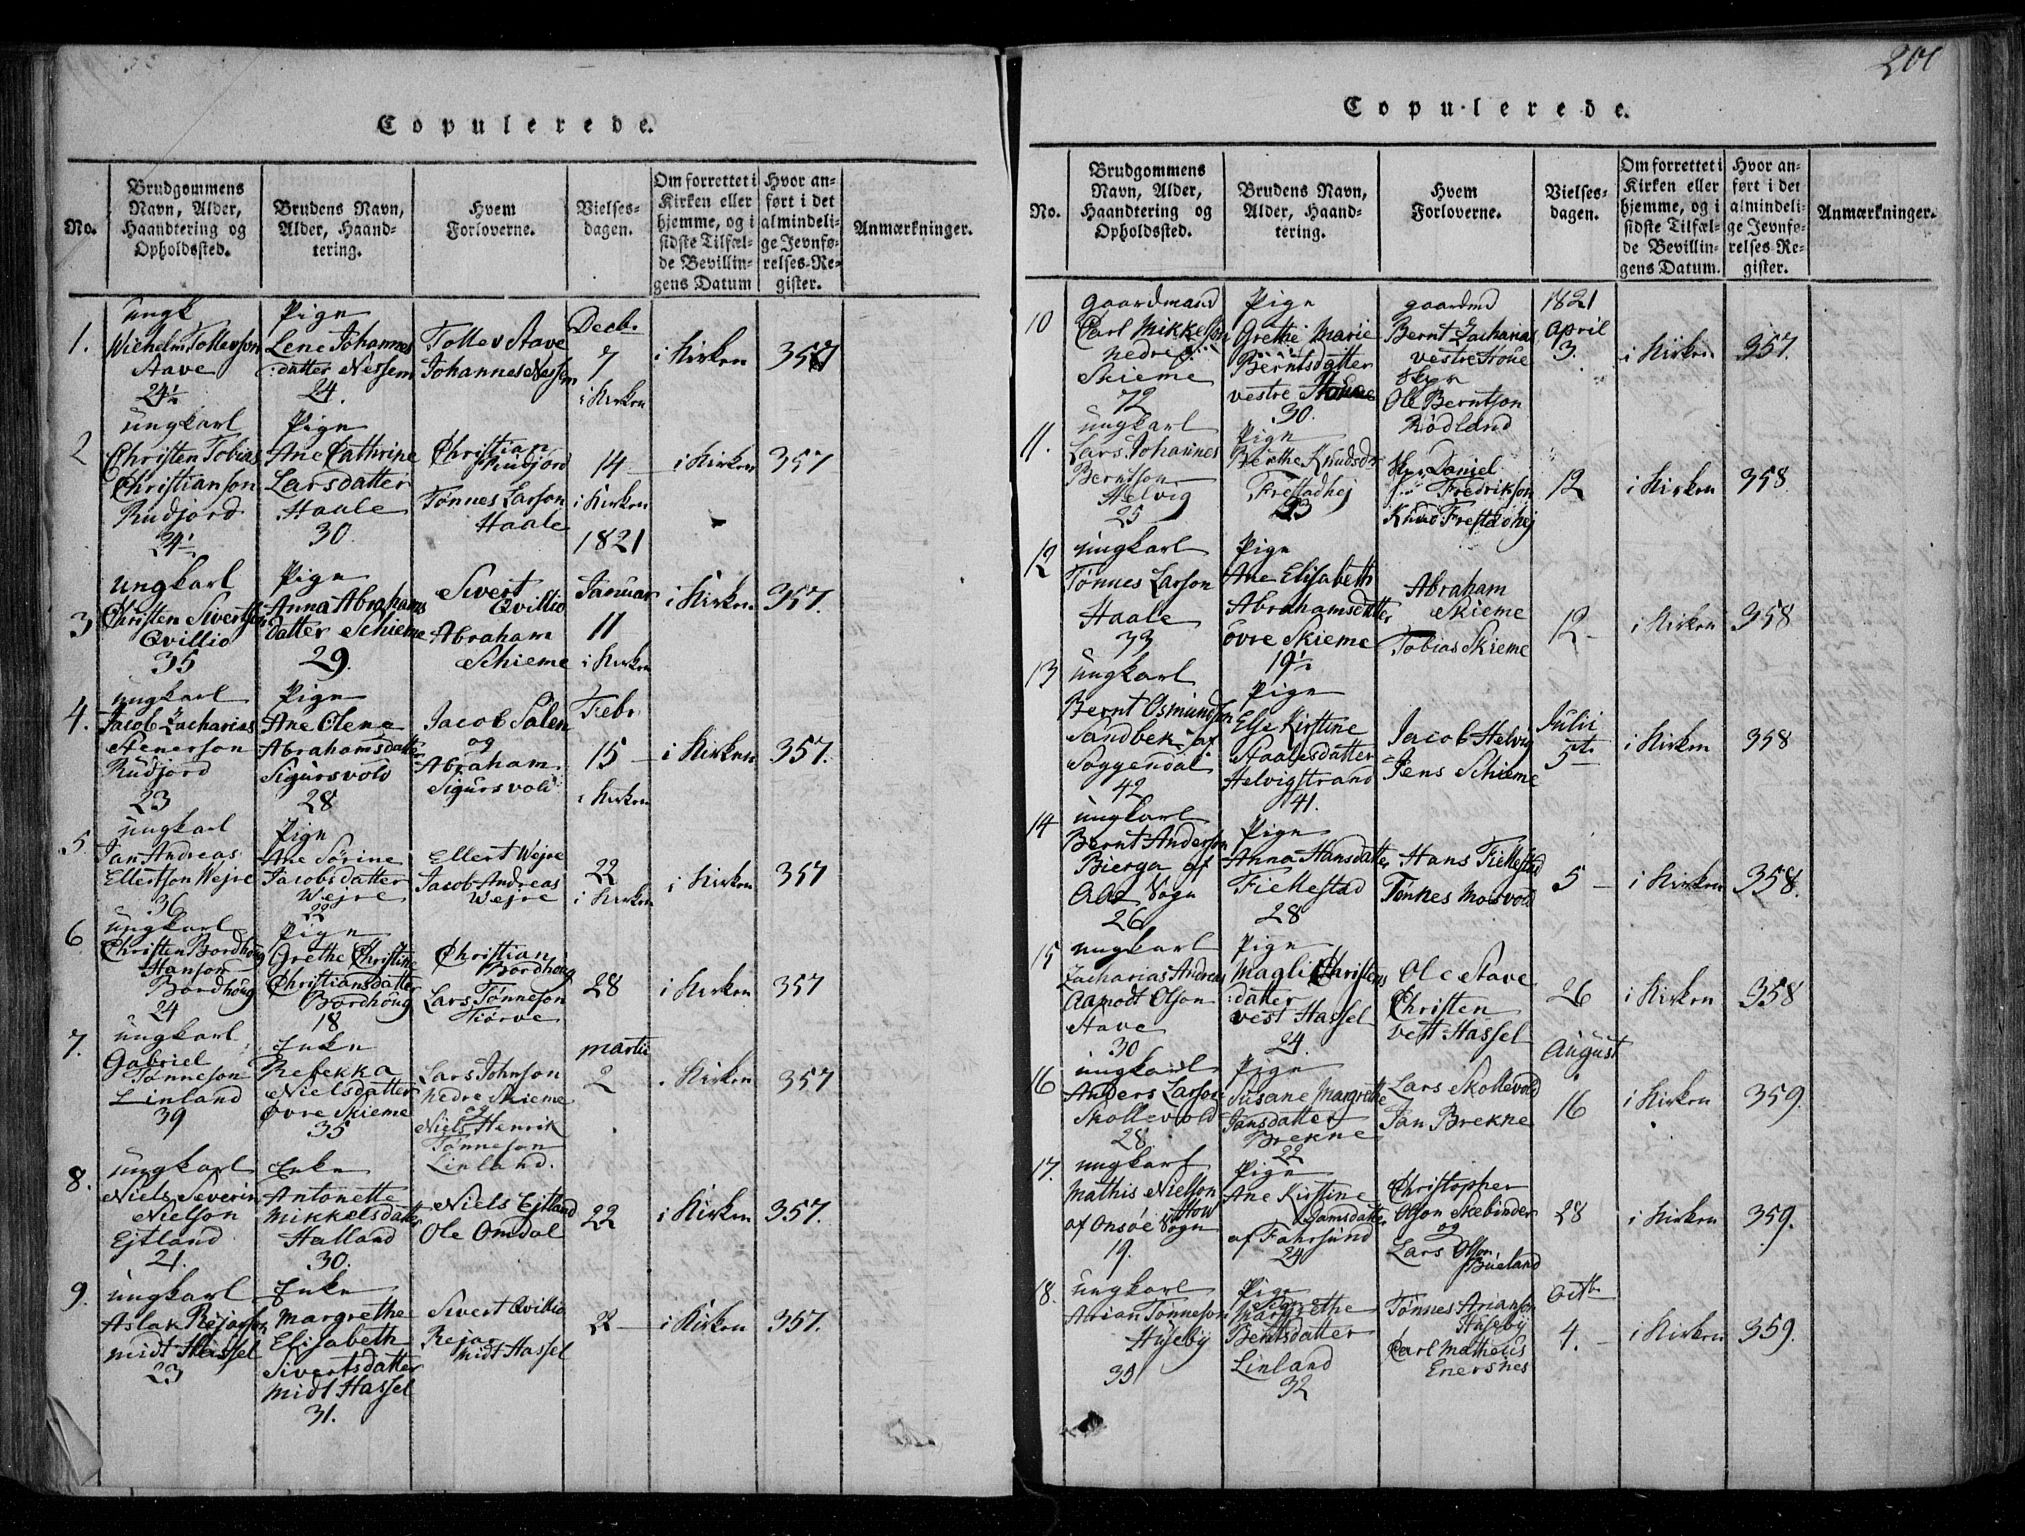 Copulerede.
No.
Brudgommens
Navn, Alder,
Haandtering og
Opholdssted.
Brudens Navn,
Alder, Haand-
tering.
Hvem
Forloverne.
Vielses-
dagen.
Om forrettet i
Kirken eller
hjemme, og i
sidste Tilfæl-
de Bevillin-
gens Datum
Hvor an-
ført i det
almindeli-
ge Jevnfø-
relses-Re-
gister.
Anmærkninger.
1.
ungk
Wichelm Tollevson
Stave
24½
Pige
Lene Johannes
datter Nessem
24.
Tollev Stave
Johannes Nessem
Decbr
7
i Kirken
i Kirken
357
2
ungkarl
Christen Tobias
Christianson
Rudjord
24½
Pige
Ane Cathrine
Larsdatter
Haale
30
Christian
Rudjord
Tønnes Larson
Haale
14
i Kirken
i Kirken
357
3
ungkarl
Christen Sivertson
Qvillio
35
Pige
Anna Abrahams
datter Schieme
29.
Sivert
Qvillio
Abraham
Schieme
1821
Januar
11
i Kirken
i Kirken
357.
4.
ungkarl
Jacob Zacharias
Stenerson
Rudjord
23
Pige
Ane Olene
Abrahamsdatter
Sigursvold
28
Jacob Salen
og
Abraham
Sigursvold
Febr
15
i Kirken
i Kirken
357.
5
ungkarl
Jan Andreas
Ellertson Wejre
36
Pige
Ane Sørine
Jacobsdatter
Wejre
22
Ellert Wejre
Jacob Andreas
Wejre
22
i Kirken
i Kirken
357
6
ungkarl
Christen Bordhoug
Hanson
Bordhoug
24
Pige
Grethe Christine
Christiansdatter
Bordhoug
18
Christian
Bordhoug
Lars Tønneson
Tiørve
28
i Kirken
357
7.
ungkarl
Gabriel
Tønneson
Linland
39
Enke
Rebekka
Nielsdatter
øvre Skieme
35
Lars Johnson
nedre Skieme
og
Niels Henrik
Tønneson
Linland.
Martii
2
i Kirken
357
8.
ungkarl
Niels Severin
Nielson
Ejtland
21.
Enke
Antonette
Mikkelsdatter
Halland
30.
Niels Ejtland
Ole Omdal
22
i Kirken
357.
9.
ungkarl
Aslak Rejarson
midt Hassel
23
Enke
Margrethe
Elisabeth
Sivertsdatter
midt Hassel
31.
Sivert Qvillio
Rejar
midt Hassel
22
i Kirken
357.
201
Copulerede.
No.
Brudgommens
Navn, Alder,
Haandtering og
Opholdssted.
Brudens Navn,
Alder, Haand-
tering.
Hvem
Forloverne.
Vielses-
dagen.
Om forrettet i
Kirken eller
hjemme, og i
sidste Tilfæl-
de Bevillin-
gens Datum.
Hvor an-
ført i det
almindeli-
ge Jevnfø-
relses-Re-
gister.
Anmærkninger.
10
gaardmand
Carl Mikkelson
nedre
Skieme
72
Pige
Grethe Marie
Berntsdatter
vestre Houe
30.
gaardmd
Bernt Zacharias
vestre Houe
Ole Berntson
Rødland
1821
April
3.
i Kirken
357.
11.
ungkarl
Lars Johannes
Berntson
Helvig
25
Pige
Berthe Knudsdr
Frestadhej
23
Daniel
Fredrikson
Knud Frestadhej
12
i Kirken
358
12
ungkarl
Tønnes Larson
Haale
33
Pige
Ane Elisabeth
Abrahamsdatter
øvre Skieme
19½
Abraham
Skieme
Tobias Skieme
12
i Kirken
358
13
ungkarl
Bernt Osmundson
Sandbek af
Soggendal
42
Pige
Else Kirstine
Staalesdatter
Helvigstrand
41.
Jacob Helvig
Jens Schieme
Julii
5te
i Kirken
358
14
ungkarl
Bernt Anderson
Bierga af
Aas Sogn
26
Pige
Anna Hansdatter
Fiellestad
28
Hans Fiellestad
Tønnes Mosvold
5
i Kirken
358.
15
ungkarl
Zacharias Andreas
Aamodt Olson
Stave
30
Pige
Magli Christens
datter
vest Hassel
24.
Ole Stave
Christen
vest Hassel
26
i Kirken
358
16
ungkarl
Anders Larson
Skollevold
28.
Pige
Susane Margrethe
Jansdatter
Brekne
22
Lars Skollevold
Jan Brekne
August
16
i Kirken
359.
17.
ungkarl
Mathis Nielson
How
af Onsøe Sogn
19.
Pige
Ane Kirstine
af Fahrsund
24
Christopher
Olson Skebinder
og
Lars Olson
Büeland
28
i Kirken
359.
18.
ungkarl
Arian Tønneson
Huseby
35
Pige
Margrethe
Bentsdatter
Linland
32
Tønnes Arianson
Huseby
Carl Matheus
Enersnes
Octb
4.
i Kirken
359.